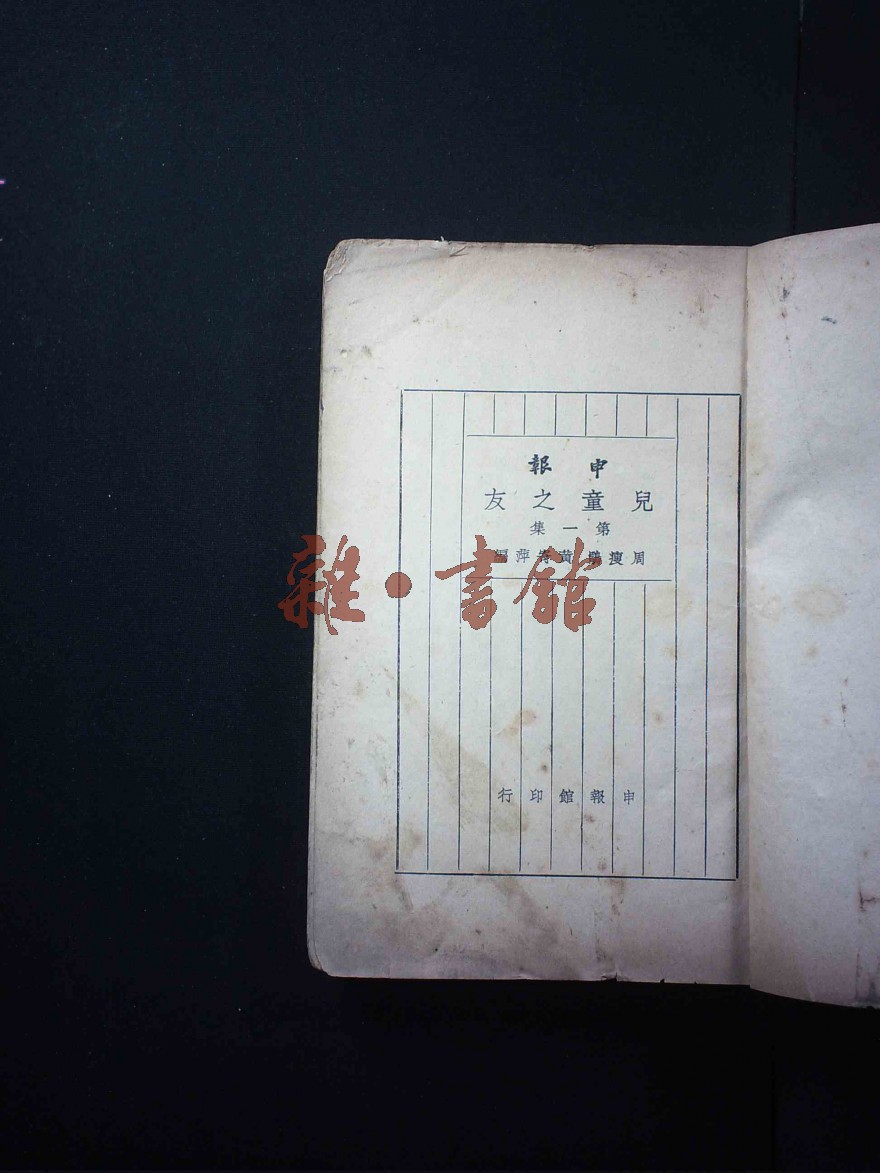 申報
兒童之友
第一集
周瘦鵑 黃寄萍編
申報館印行
雜·書館